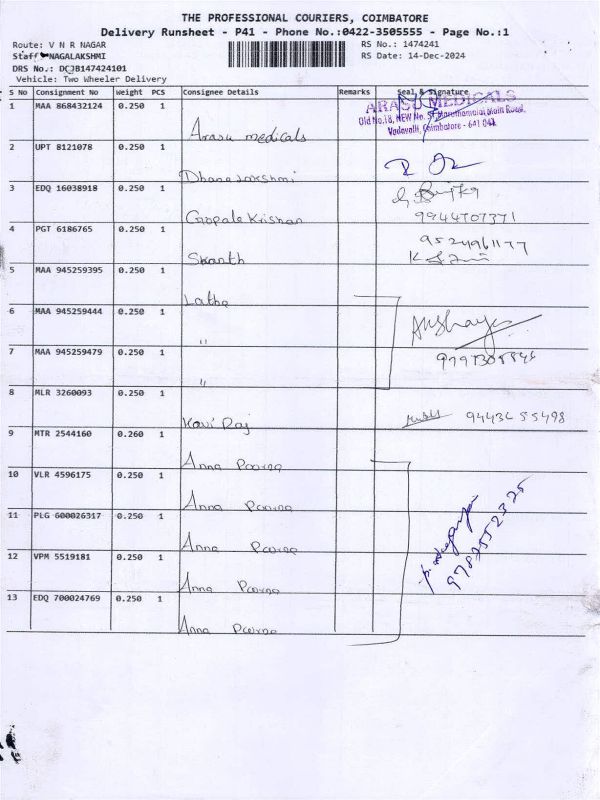 THE PROFESSIONAL COURIERS, COIMBATORE
Delivery Runsheet - P41 - Phone No.:0422-3505555 - Page No.:1
Route: V N R NAGAR
RS No.: 1474241
Staff NAGALAKSHMI
RS Date: 14-Dec-2024
DRS No.: DCJB147424101
Vehicle: Two Wheeler Delivery
S No Consignment No Weight PCS Consignee Details Remarks Seal & Signature
1 MAA 868432124 0.250 1 Arasu medicals
ARASU MEDICALS
Old No.18, NEW No. Marudhamalai Main Road,
Vadavalli, Coimbatore - 641 041
2 UPT 8121078 0.250 1 Dhanalakshmi
3 EDQ 16038918 0.250 1 Gopala Krishnan
9944707371
4 PGT 6186765 0.250 1 Srkanth
9524961177
5 MAA 945259395 0.250 1 Latha
6 MAA 945259444 0.250 1 "
Akshaya
7 MAA 945259479 0.250 1 "
8 MLR 3260093 0.250 1 Kavi Raj
94436 55498
9 MTR 2544160 0.260 1 Anna Poorna
10 VLR 4596175 0.250 1 Anna Poorna
11 PLG 600026317 0.250 1 Anna Poorna
12 VPM 5519181 0.250 1 Anna Poorna
13 EDQ 700024769 0.250 1 Anna Poorna